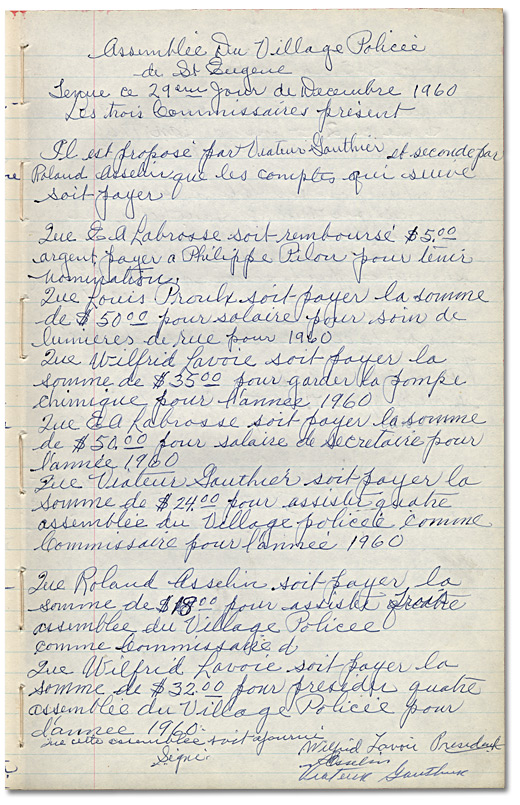 Assemblée Du Village Policée
de St Eugene
Tenue ce 29eme Jour de Decembre 1960
Les trois Commissaires présent
Il est proposé par Viateur Gauthier et secondé par
Roland Asselin que les comptes qui suive
soit payer
Que E A Labrosse soit remboursé $5.00
argent payer a Philippe Pilon pour tenir
nomination.
Que Louis Proulx soit payer la somme
de $50.00 pour salaire pour soin de
lumieres de rue pour 1960
Que Wilfrid Lavoie soit payer la
somme de $35.00 pour garder la pompe
chimique pour l'année 1960
Que E A Labrosse soit payer la somme
de $50.00 pour salaire de Secretaire pour
l'année 1960
Que Viateur Gauthier soit payer la
somme de $24.00 pour assister quatre
assemblée du Village policée comme
Commissaire pour l'année 1960
Que Roland Asselin soit payer la
somme de $18.00 pour assister
assemblée du Village Policée
comme Commissaire d
Que Wilfrid Lavoie soit payer la
somme de $32.00 pour presider quatre
assemblée du Village Policée pour
l'année 1960.
Que cette assemblée soit ajourné
Signé.
Wilfrid Lavoie President
Asselin
Viateur Gauthier